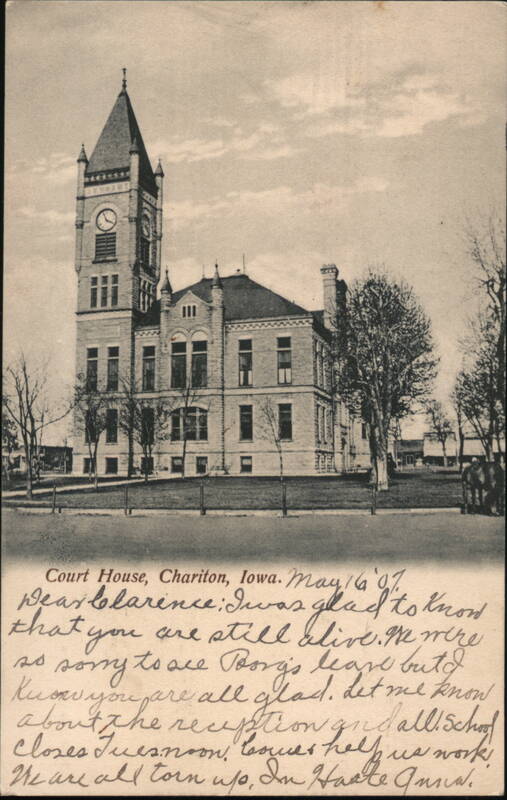 Court House, Chariton, Iowa. May 16 '07.
Dear Clarence: I was glad to know
that you are still alive. We were
so sorry to see Borgs leave but I
know you are all glad. Let me know
about the reception and all. School
closes Tues. noon. Come & help us work.
We are all torn up. In Haste Anna.